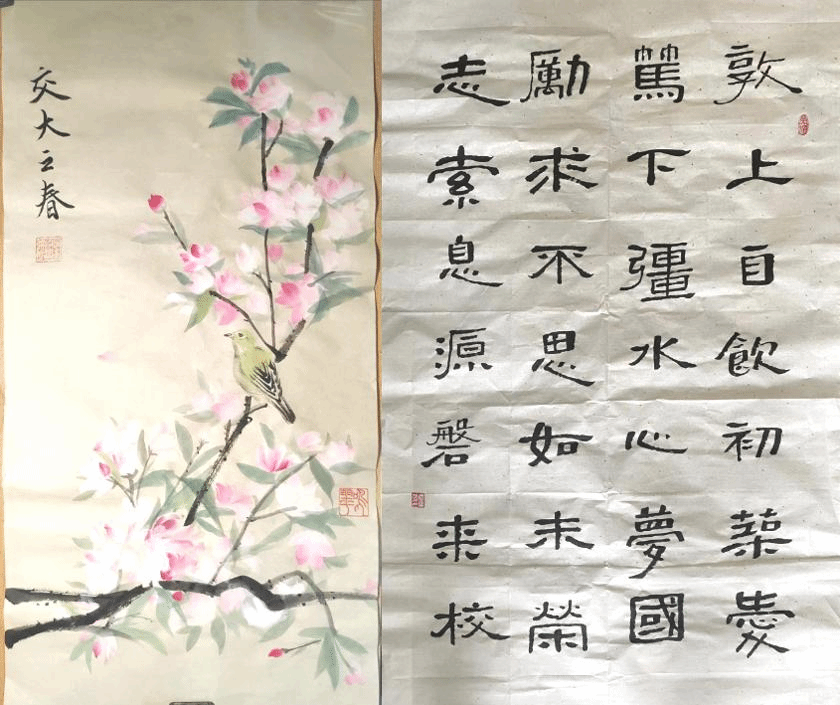 交大之春
敦篤勵志
上下求索
自彊不息
飲水思源
初心如磐
築夢未来
愛國榮校